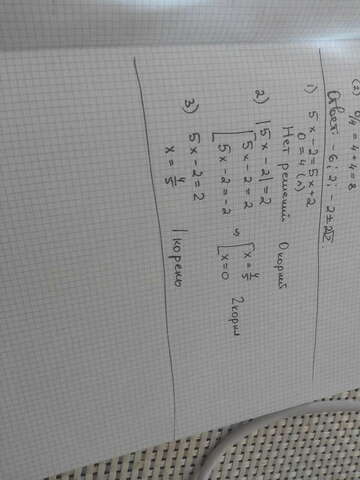 (2) D/4 = 4 + 4 = 8
Ответ: -6; 2; -2 ± 2√2.
1) 5x - 2 = 5x + 2
0 = 4 (л)
Нет решений 0 корней
2) |5x - 2| = 2
[5x - 2 = 2
[5x - 2 = -2
[x = 4/5
[x = 0
2 корня
3) 5x - 2 = 2
x = 4/5
1 корень